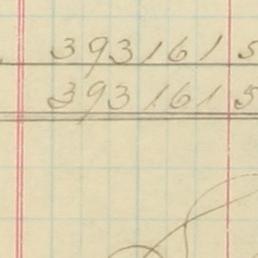 393161 5
393161 5